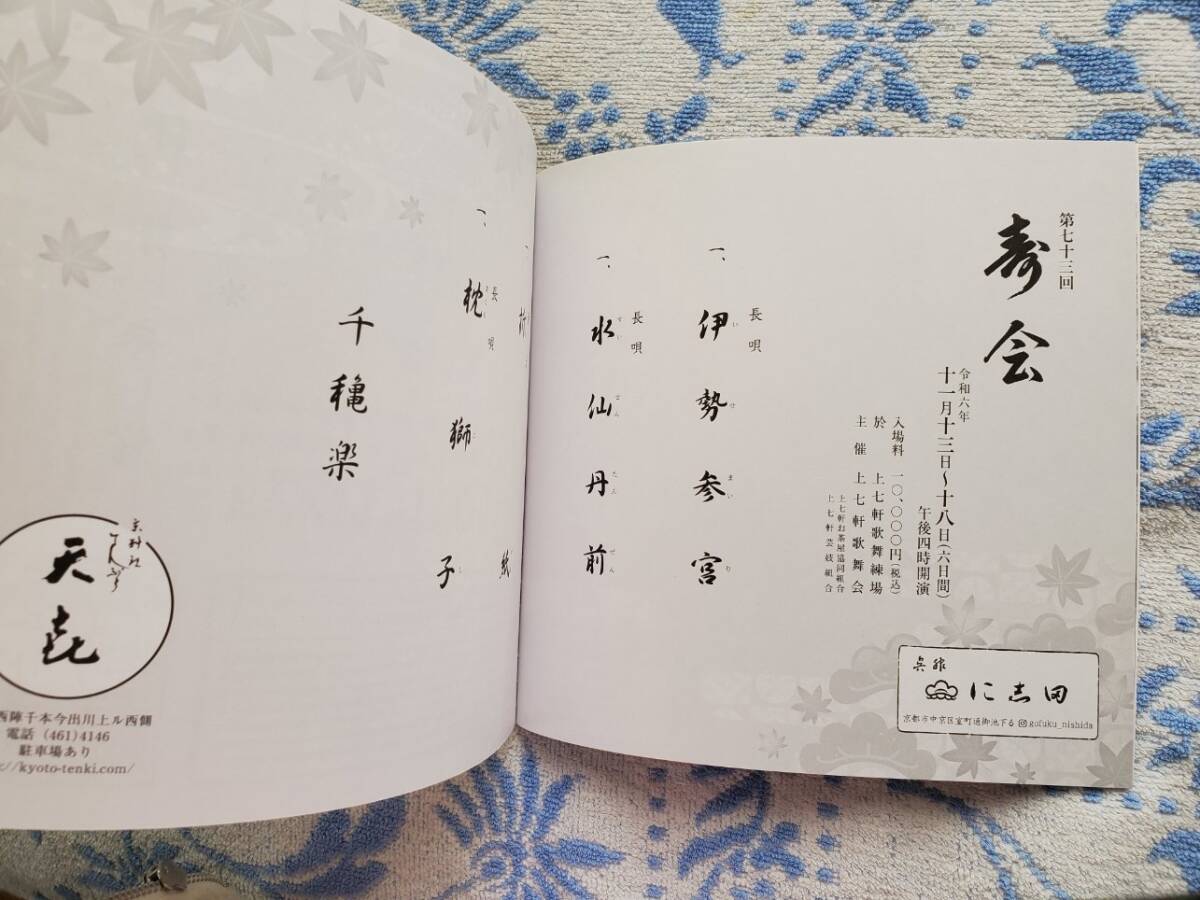 第七十三回
寿会
令和六年
十一月十三日～十八日(六日間)
午後四時開演
入場料 一〇、〇〇〇円(税込)
於 上七軒歌舞練場
主催 上七軒歌舞会
上七軒お茶屋協同組合
上七軒芸妓組合
長唄
一、伊勢参宮
い せ まい り
長唄
一、水仙丹前
すい せん たん ぜん
呉服
に志田
京都市中京区室町通御池下る gofuku_nishida
一、
長唄
一、枕獅子
千穐楽
京料理
てんぷら
天㐂
西陣千本今出川上ル西側
電話 (461)4146
駐車場あり
//kyoto-tenki.com/